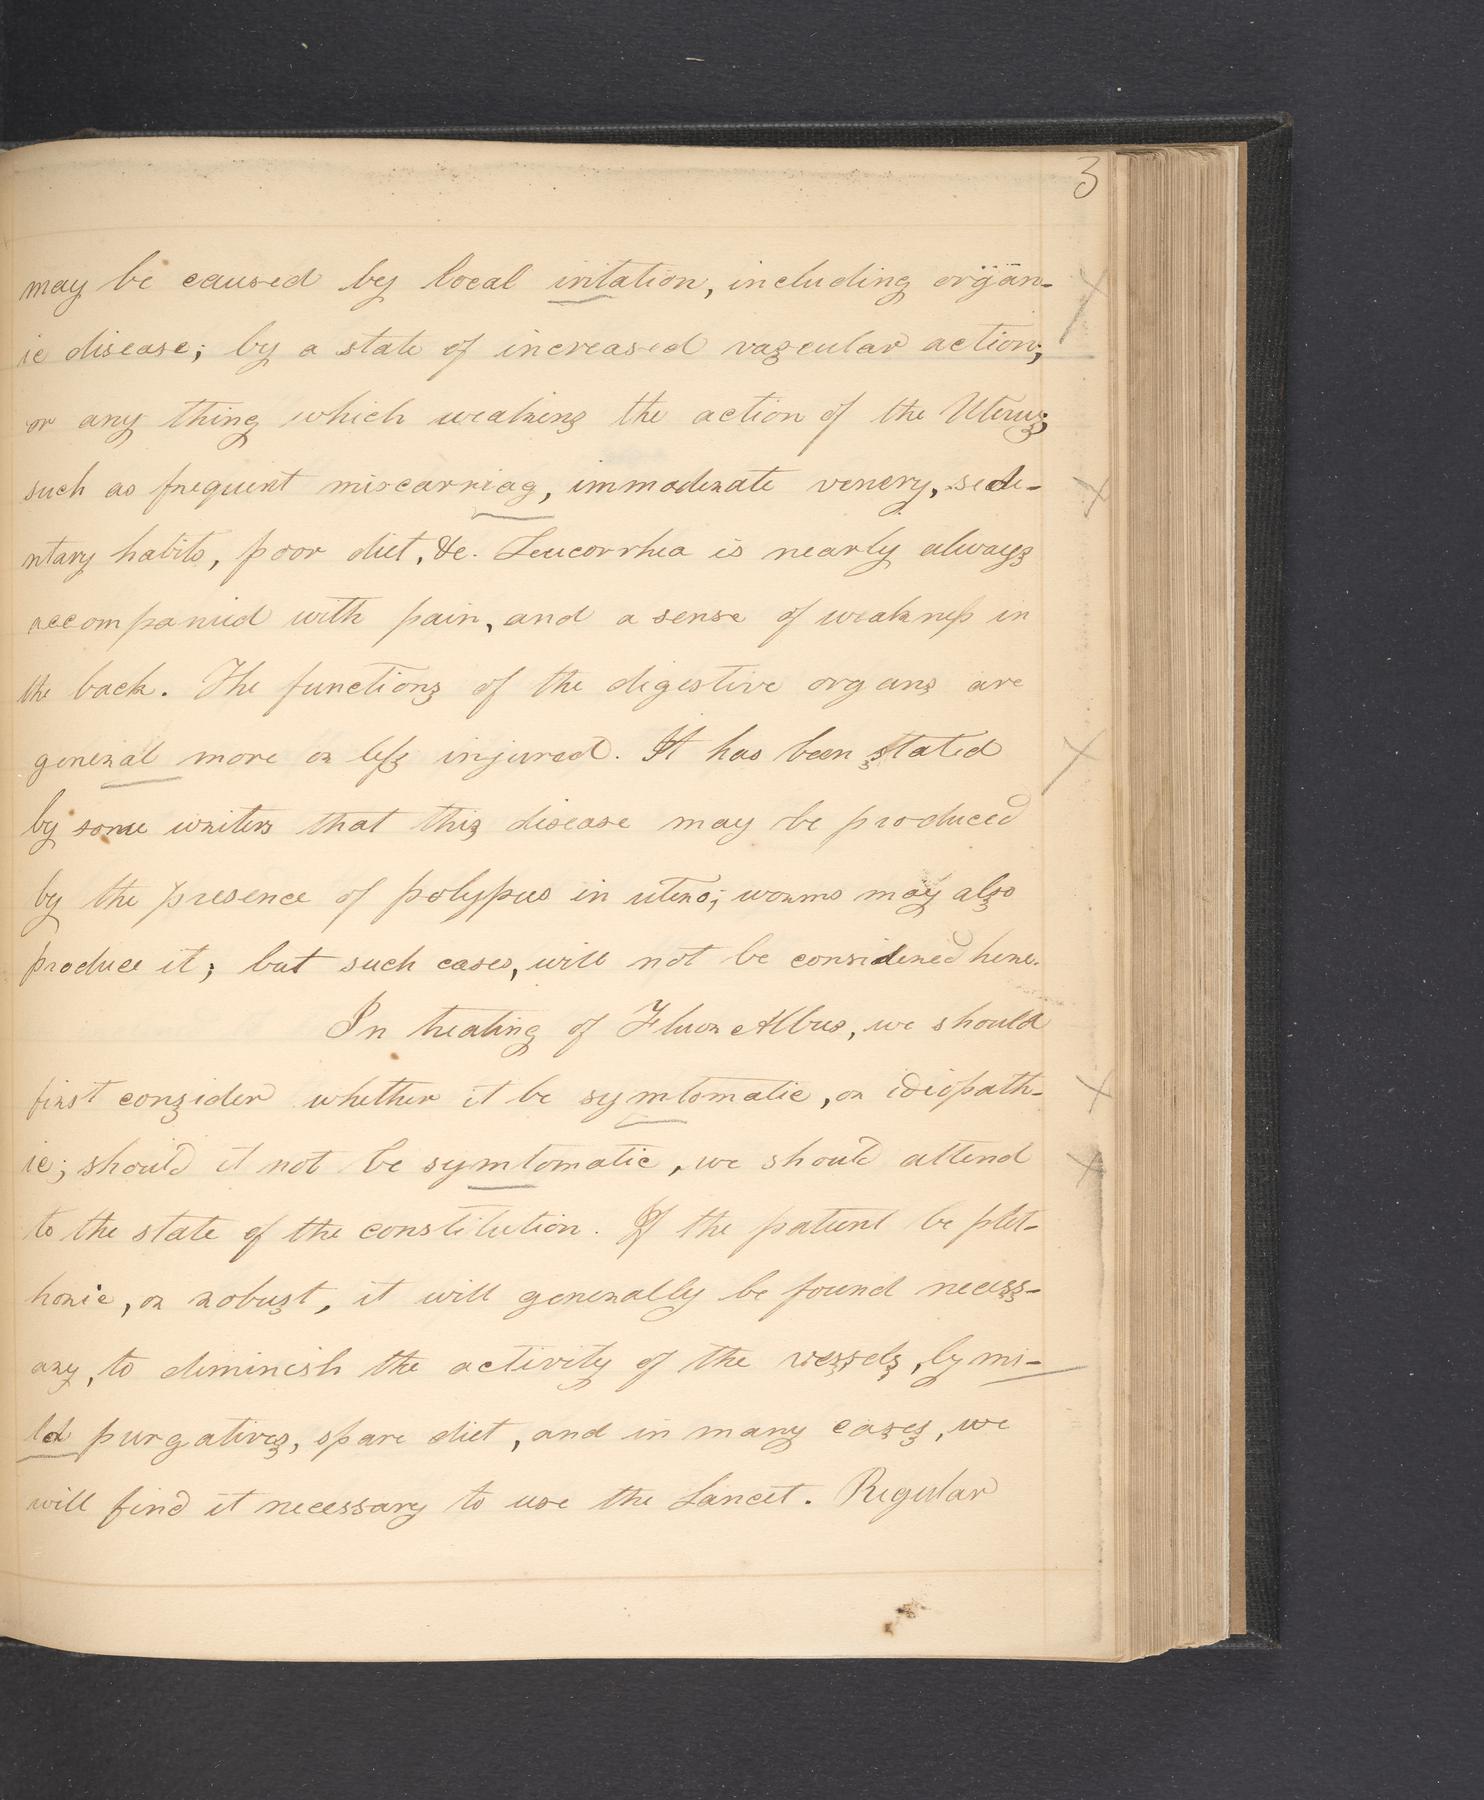 3
may be caused by local iritation, including organ-
ic disease; by a state of increased vascular action;
or any thing which weakens the action of the Uterus;
such as frequent miscarriag, immoderate venery, sede-
ntary habits, poor diet, &c. Leucorrhea is nearly always
accompanied with pain, and a sense of weakness in
the back. The functions of the digestive organs are
general more or less injured. It has been stated
by some writers that this disease may be produced
by the presence of polypus in utero; worms may also
produce it; but such cases, will not be considered here.
In treating of Fluor Albus, we should
first consider whether it be symtomatic, or idiopath-
ic; should it not be symtomatic, we should attend
to the state of the constitution. If the patient be plet-
horic, or robust, it will generally be found necess-
ary, to diminish the activity of the vessels, by mi-
ld purgatives, spare diet, and in many cases, we
will find it necessary to use the Lancet. Regular